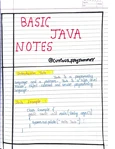 BASIC
JAVA
NOTES
@curious_programmer
Introduction Java
Java is a programming
language and a platform. Java is a high level,
robust, object-oriented and secure programming
language.
Java example
class Simple {
public static void main (String args[])
{
System.out.println ("Hello Java");
}
}